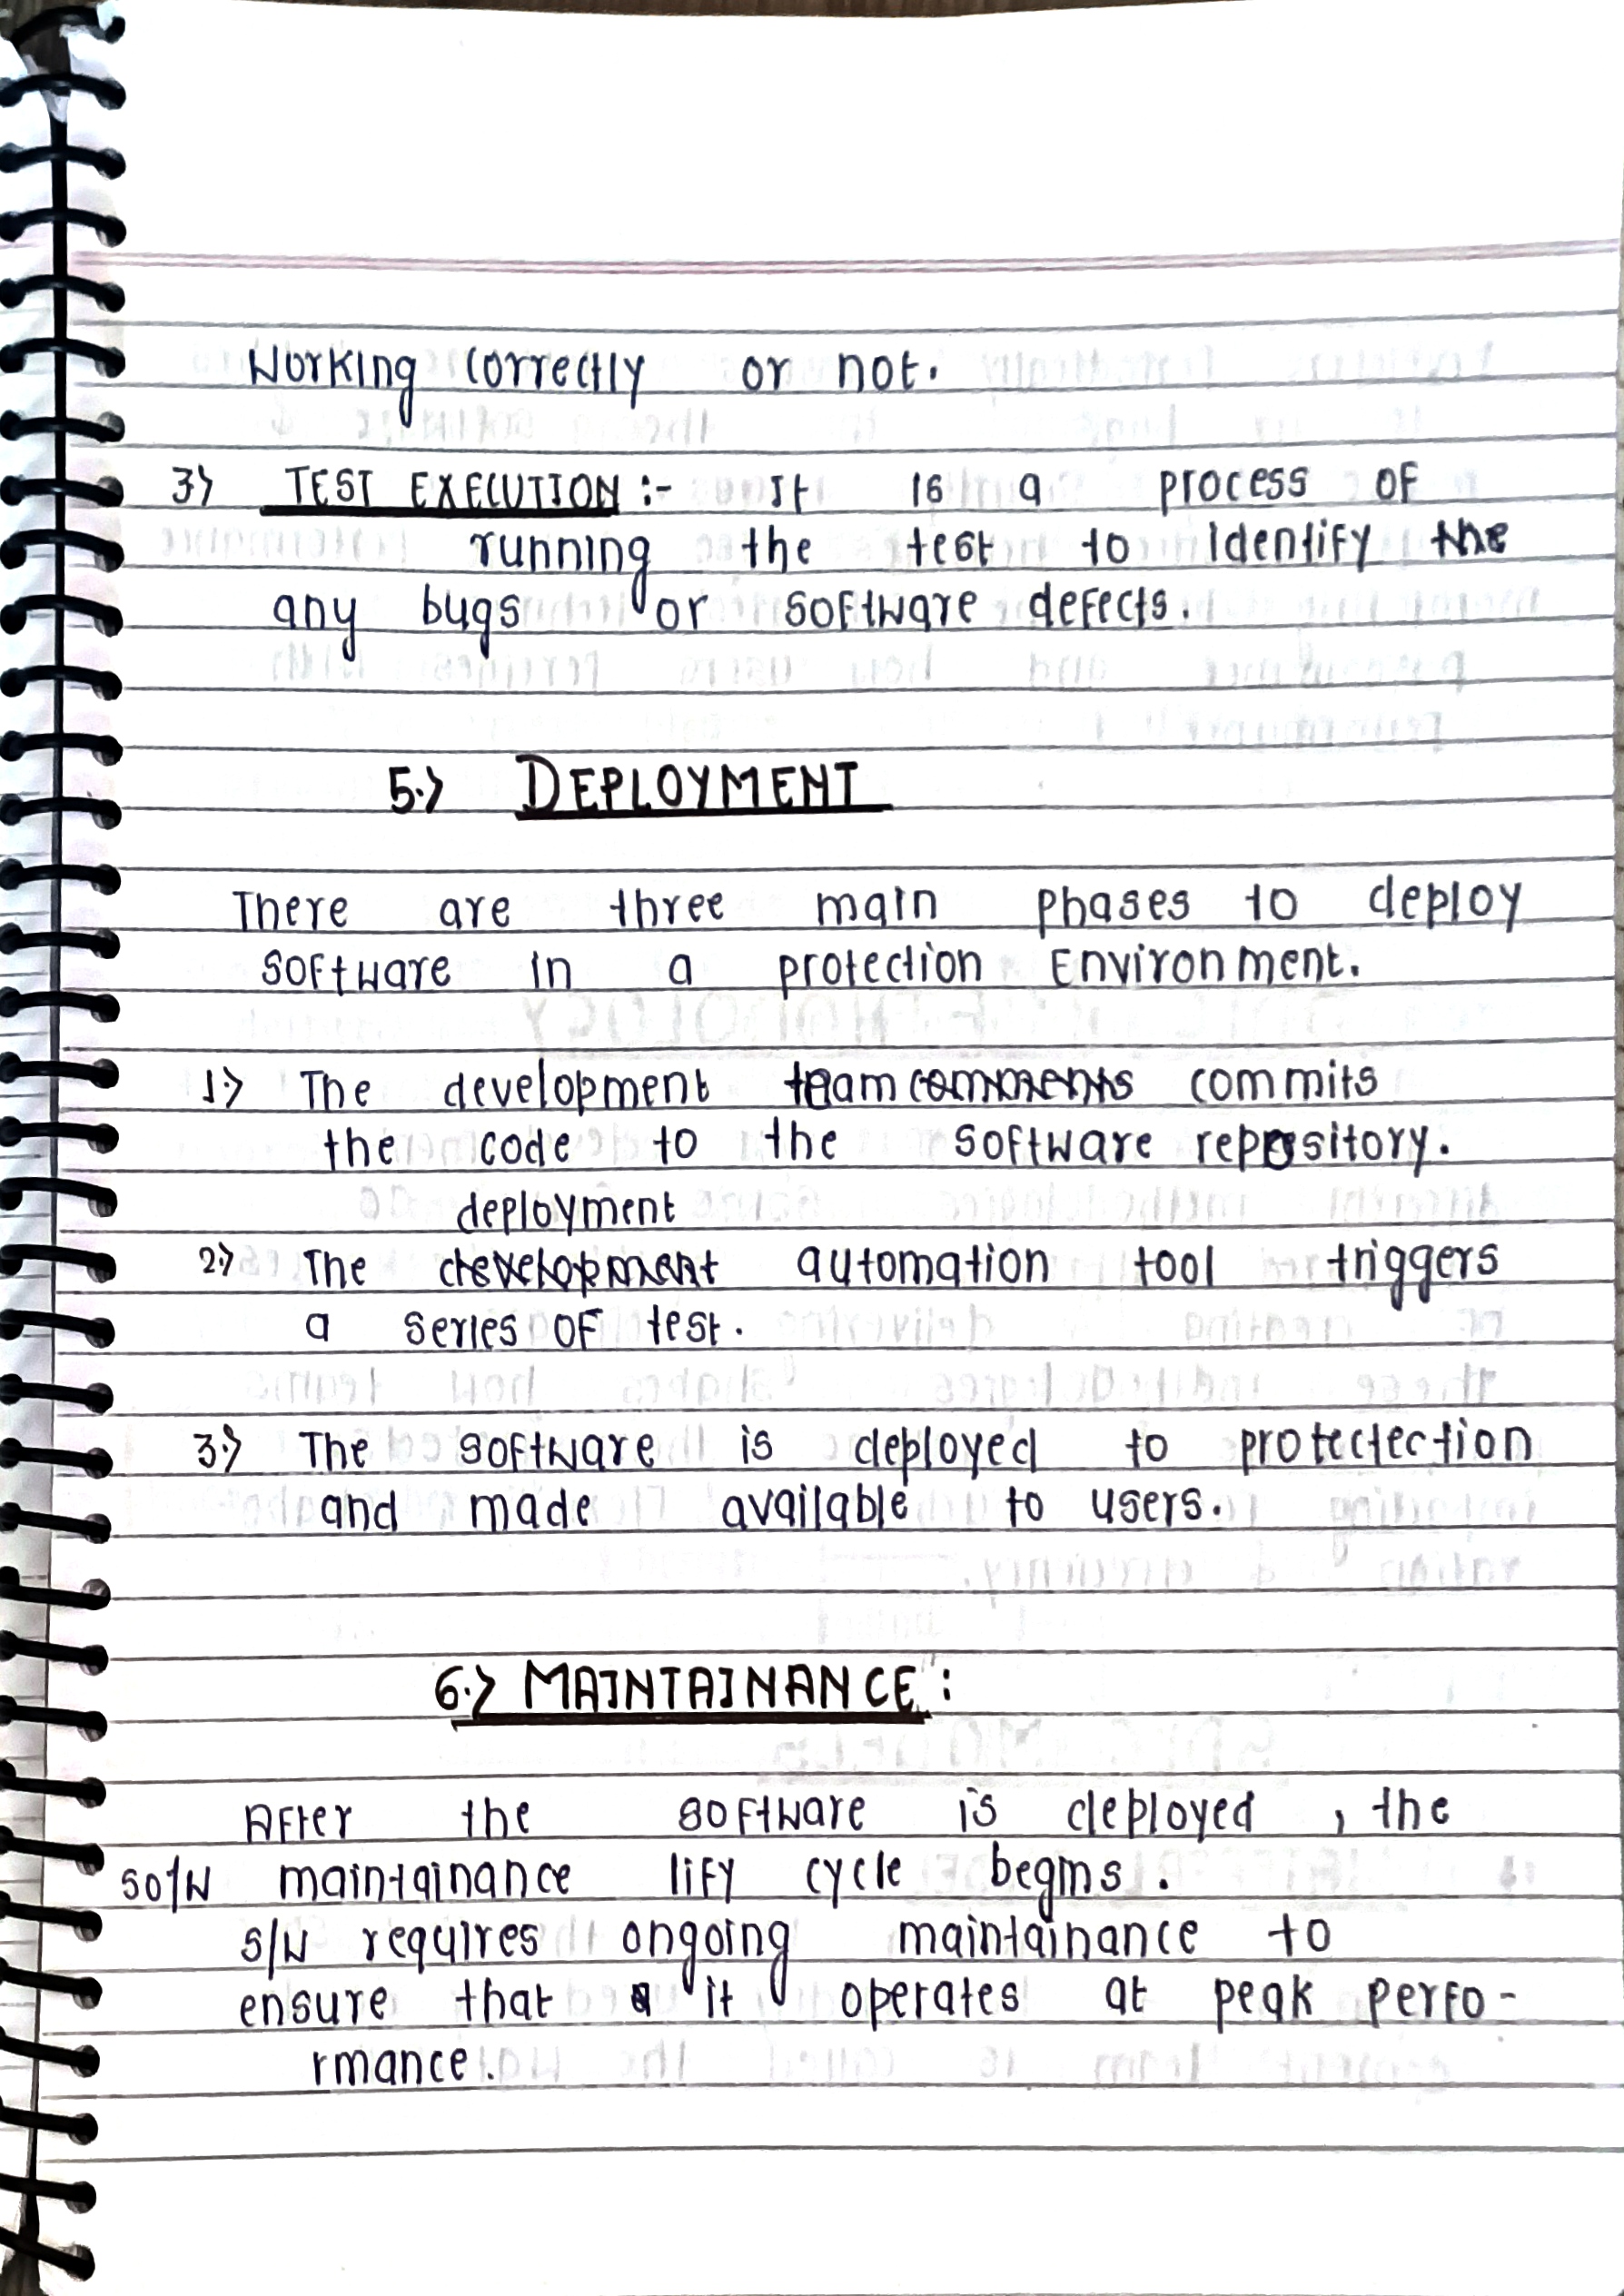 Working correctly or not.
3) TEST EXECUTION :- It is a process of
running the test to identify the
any bugs or software defects.
5.) DEPLOYMENT
There are three main phases to deploy
software in a protection Environment.
1.) The development team comments commits
the code to the software repository.
deployment
2.) The development automation tool triggers
a series of test.
3.) The software is deployed to protectection
and made available to users.
6.) MAINTAINANCE :
After the software is deployed , the
so/w maintainance lify cycle begins .
s/w requires ongoing maintainance to
ensure that it operates at peak perfo-
rmance.